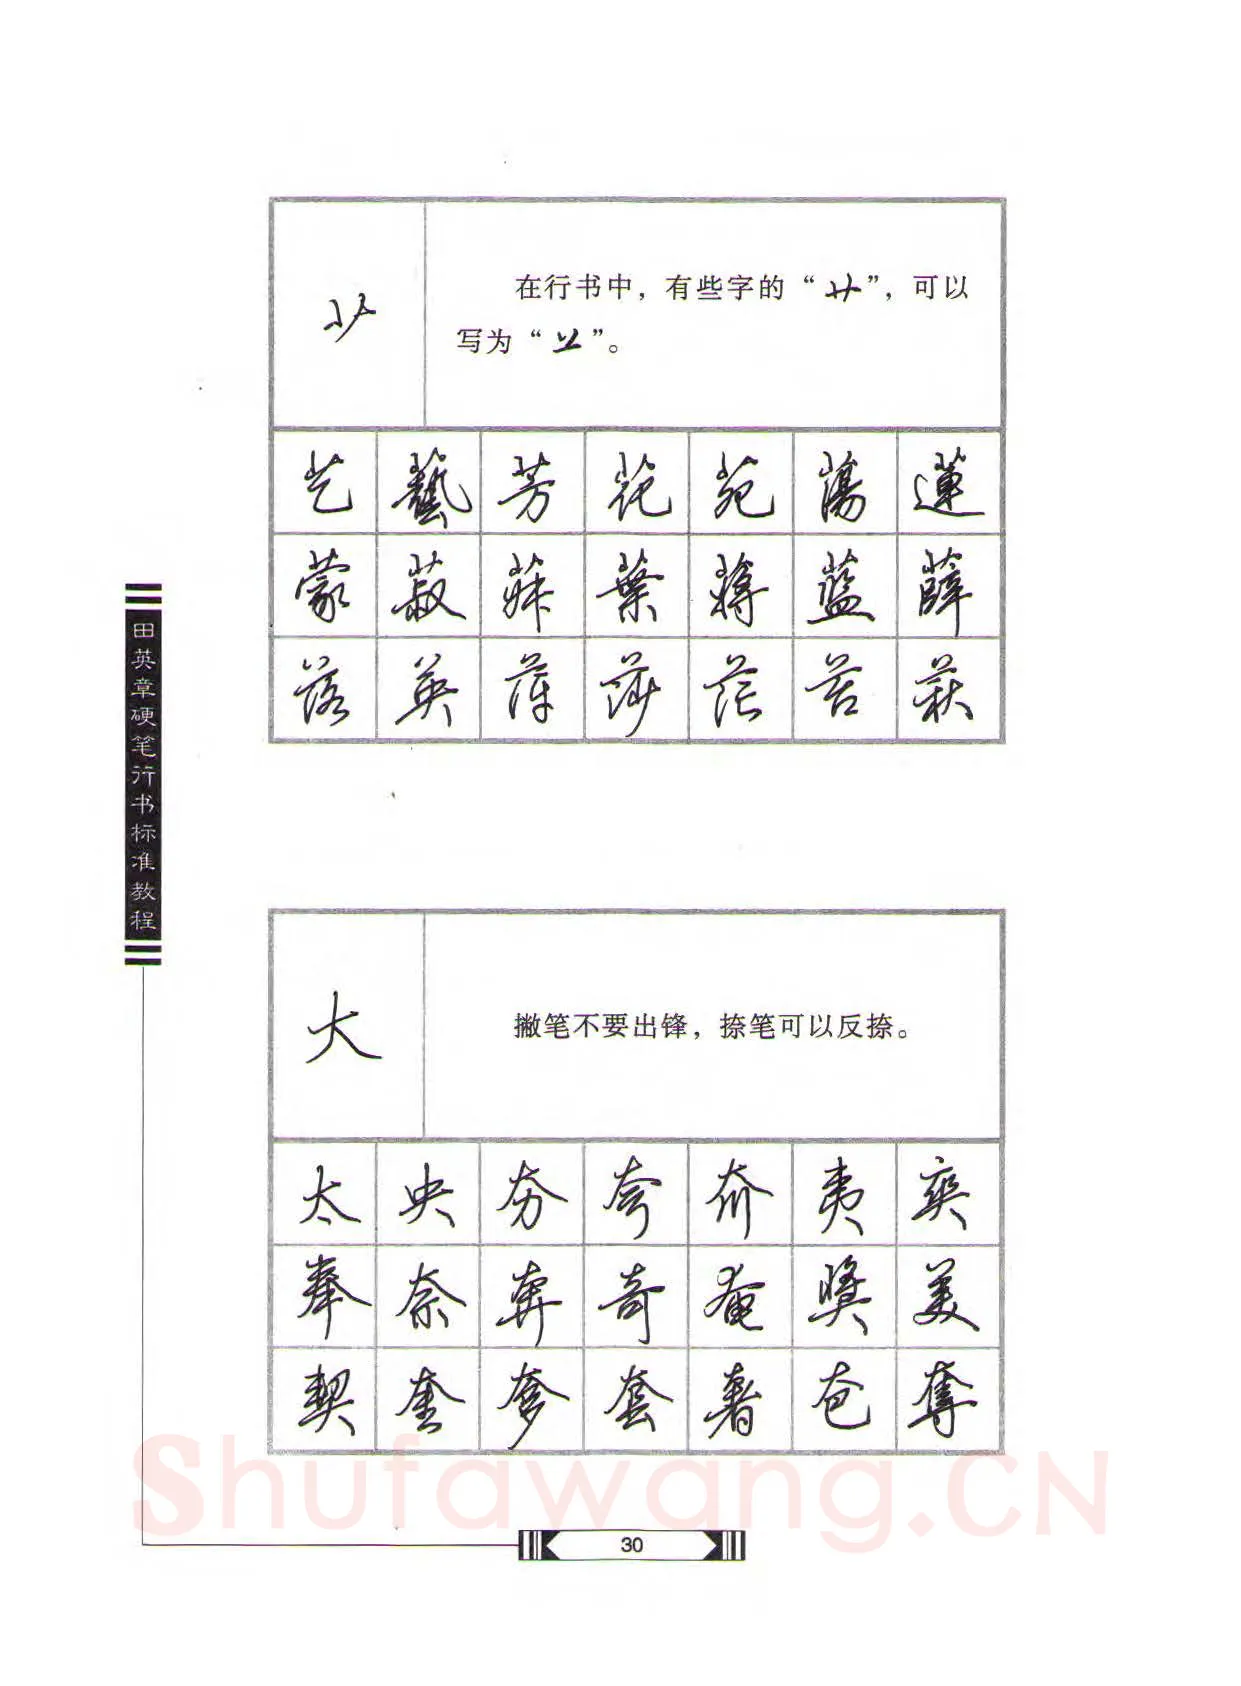 在行书中，有些字的“艹”，可以
写为“䒑”。
艺 藝 芳 花 苑 蕩 蓮
蒙 菽 葉 蔣 藍 薛
落 英 萍 莎 茫 苦 荻
田英章硬笔行书标准教程
大
撇笔不要出锋，捺笔可以反捺。
太 央 夯 夸 夼 夷 奕
奉 奈 奔 奇 奄 獎 美
契 奎 奓 套 奢 夿 奪
Shufawang.CN
30